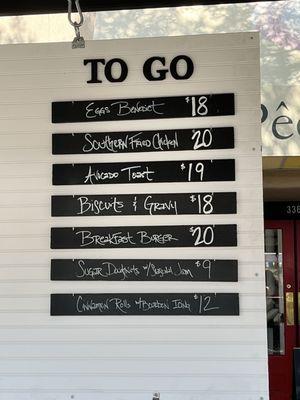 TO GO
Eggs Benedict $18
Southern Fried Chicken $20
Avocado Toast $19
Biscuits & Gravy $18
Breakfast Burger $20
Sugar Doughnuts w/ Jam $9
Cinnamon Rolls w/ Bourbon Icing $12
Pê